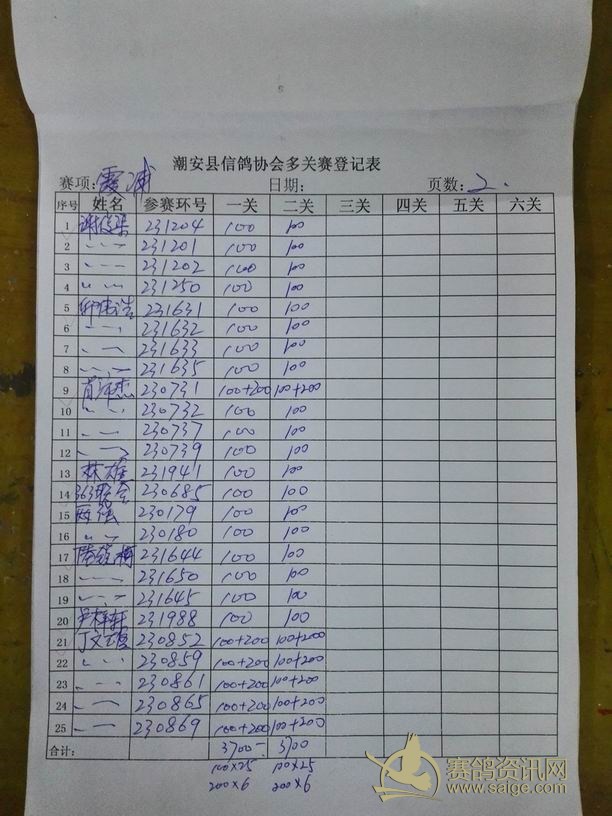 潮安县信鸽协会多关赛登记表
赛项: 霞浦 日期: 页数: 2.
序号 姓名 参赛环号 一关 二关 三关 四关 五关 六关
1 231204 100 100
2 〃 231201 100 100
3 〃 231202 100 100
4 〃 231250 100 100
5 231631 100 100
6 〃 231632 100 100
7 〃 231633 100 100
8 〃 231635 100 100
9 230731 100+200 100+200
10 〃 230732 100 100
11 〃 230737 100 100
12 〃 230739 100 100
13 林雄 231941 100 100
14 363 230685 100 100
15 230179 100 100
16 〃 230180 100 100
17 231644 100 100
18 〃 231650 100 100
19 〃 231645 100 100
20 231988 100 100
21 230852 100+200 100+200
22 〃 230859 100+200 100+200
23 〃 230861 100+200 100+200
24 〃 230865 100+200 100+200
25 〃 230869 100+200 100+200
合计: 3700 3700
100×25 100×25
200×6 200×6
赛鸽资讯网
www.saige.com